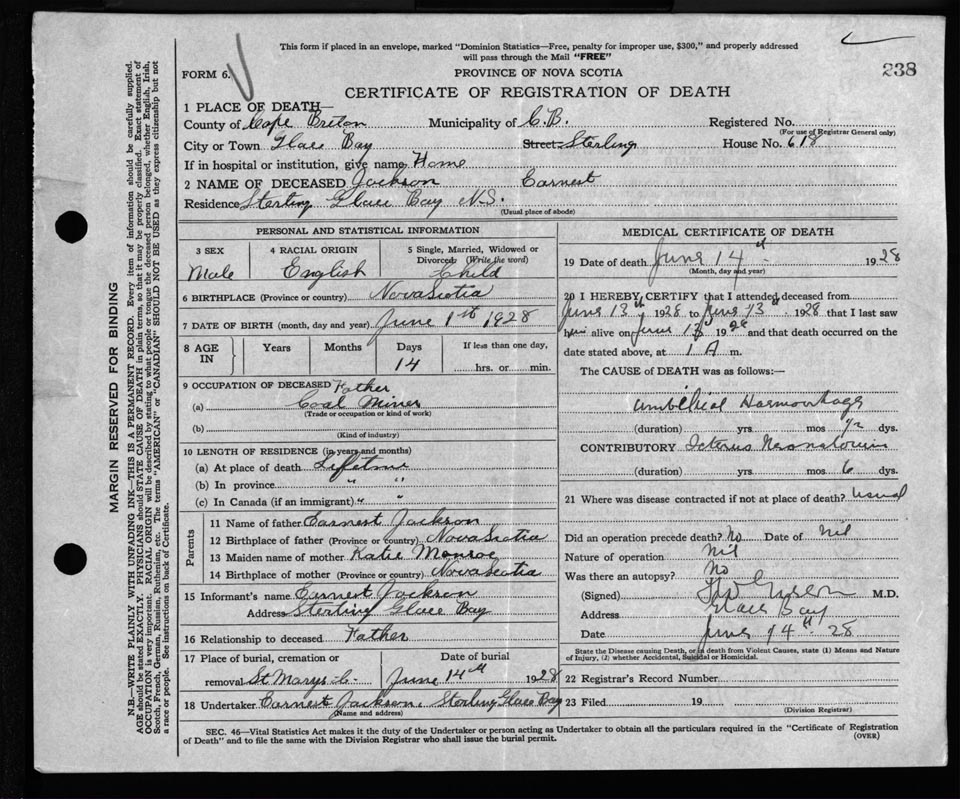 This form if placed in an envelope, marked "Dominion Statistics—Free, penalty for improper use, $300," and properly addressed
will pass through the Mail "FREE"
FORM 6.
PROVINCE OF NOVA SCOTIA
238
CERTIFICATE OF REGISTRATION OF DEATH
1 PLACE OF DEATH—
County of Cape Breton Municipality of C.B. Registered No.
(For use of Registrar General only)
City or Town Glace Bay Street Sterling House No. 618
If in hospital or institution, give name Home
2 NAME OF DECEASED Jackson Earnest
Residence Sterling Glace Bay N.S.
(Usual place of abode)
PERSONAL AND STATISTICAL INFORMATION
3 SEX 4 RACIAL ORIGIN 5 Single, Married, Widowed or
Divorced (Write the word)
Male English Child
6 BIRTHPLACE (Province or country) Nova Scotia
7 DATE OF BIRTH (month, day and year) June 1st 1928
8 AGE IN Years Months Days If less than one day,
14 hrs. or min.
9 OCCUPATION OF DECEASED Father
(a) Coal Miner
(Trade or occupation or kind of work)
(b)
(Kind of industry)
10 LENGTH OF RESIDENCE (in years and months)
(a) At place of death Lifetime
(b) In province " "
(c) In Canada (if an immigrant) " "
Parents
11 Name of father Earnest Jackson
12 Birthplace of father (Province or country) Nova Scotia
13 Maiden name of mother Katie Monroe
14 Birthplace of mother (Province or country) Nova Scotia
15 Informant's name Earnest Jackson
Address Sterling Glace Bay
16 Relationship to deceased Father
17 Place of burial, cremation or Date of burial
removal St Marys C. June 14th 1928
18 Undertaker Earnest Jackson Sterling Glace Bay
(Name and address)
MEDICAL CERTIFICATE OF DEATH
19 Date of death June 14th 1928
(Month, day and year)
20 I HEREBY CERTIFY that I attended deceased from
June 13th 1928 to June 13th 1928 that I last saw
him alive on June 13th 1928 and that death occurred on the
date stated above, at 1 A m.
The CAUSE of DEATH was as follows:—
Umbilical Haemorrhage
(duration) yrs. mos ½ dys.
CONTRIBUTORY Icterus Neonatorum
(duration) yrs. mos 6 dys.
21 Where was disease contracted if not at place of death? usual
Did an operation precede death? No Date of Nil
Nature of operation Nil
Was there an autopsy? No
(Signed) M.D.
Address Glace Bay
Date June 14th 28
State the Disease causing Death, or in death from Violent Causes, state (1) Means and Nature
of Injury, (2) whether Accidental, Suicidal or Homicidal.
22 Registrar's Record Number
23 Filed 19
(Division Registrar)
SEC. 46—Vital Statistics Act makes it the duty of the Undertaker or person acting as Undertaker to obtain all the particulars required in the "Certificate of Registration
of Death" and to file the same with the Division Registrar who shall issue the burial permit.
(OVER)
MARGIN RESERVED FOR BINDING
N.B.—WRITE PLAINLY WITH UNFADING INK—THIS IS A PERMANENT RECORD. Every item of information should be carefully supplied.
AGE should be stated EXACTLY. PHYSICIANS should STATE CAUSE OF DEATH in plain terms, so that it may be properly classified. Exact statement of
OCCUPATION is very important. RACIAL ORIGIN will be described by stating to what people or tongue the deceased person belonged, whether English, Irish,
Scotch, French, German, Russian, Ruthenian, etc. The terms "AMERICAN" or "CANADIAN" SHOULD NOT BE USED as they express citizenship but not
a race or people. See instructions on back of Certificate.